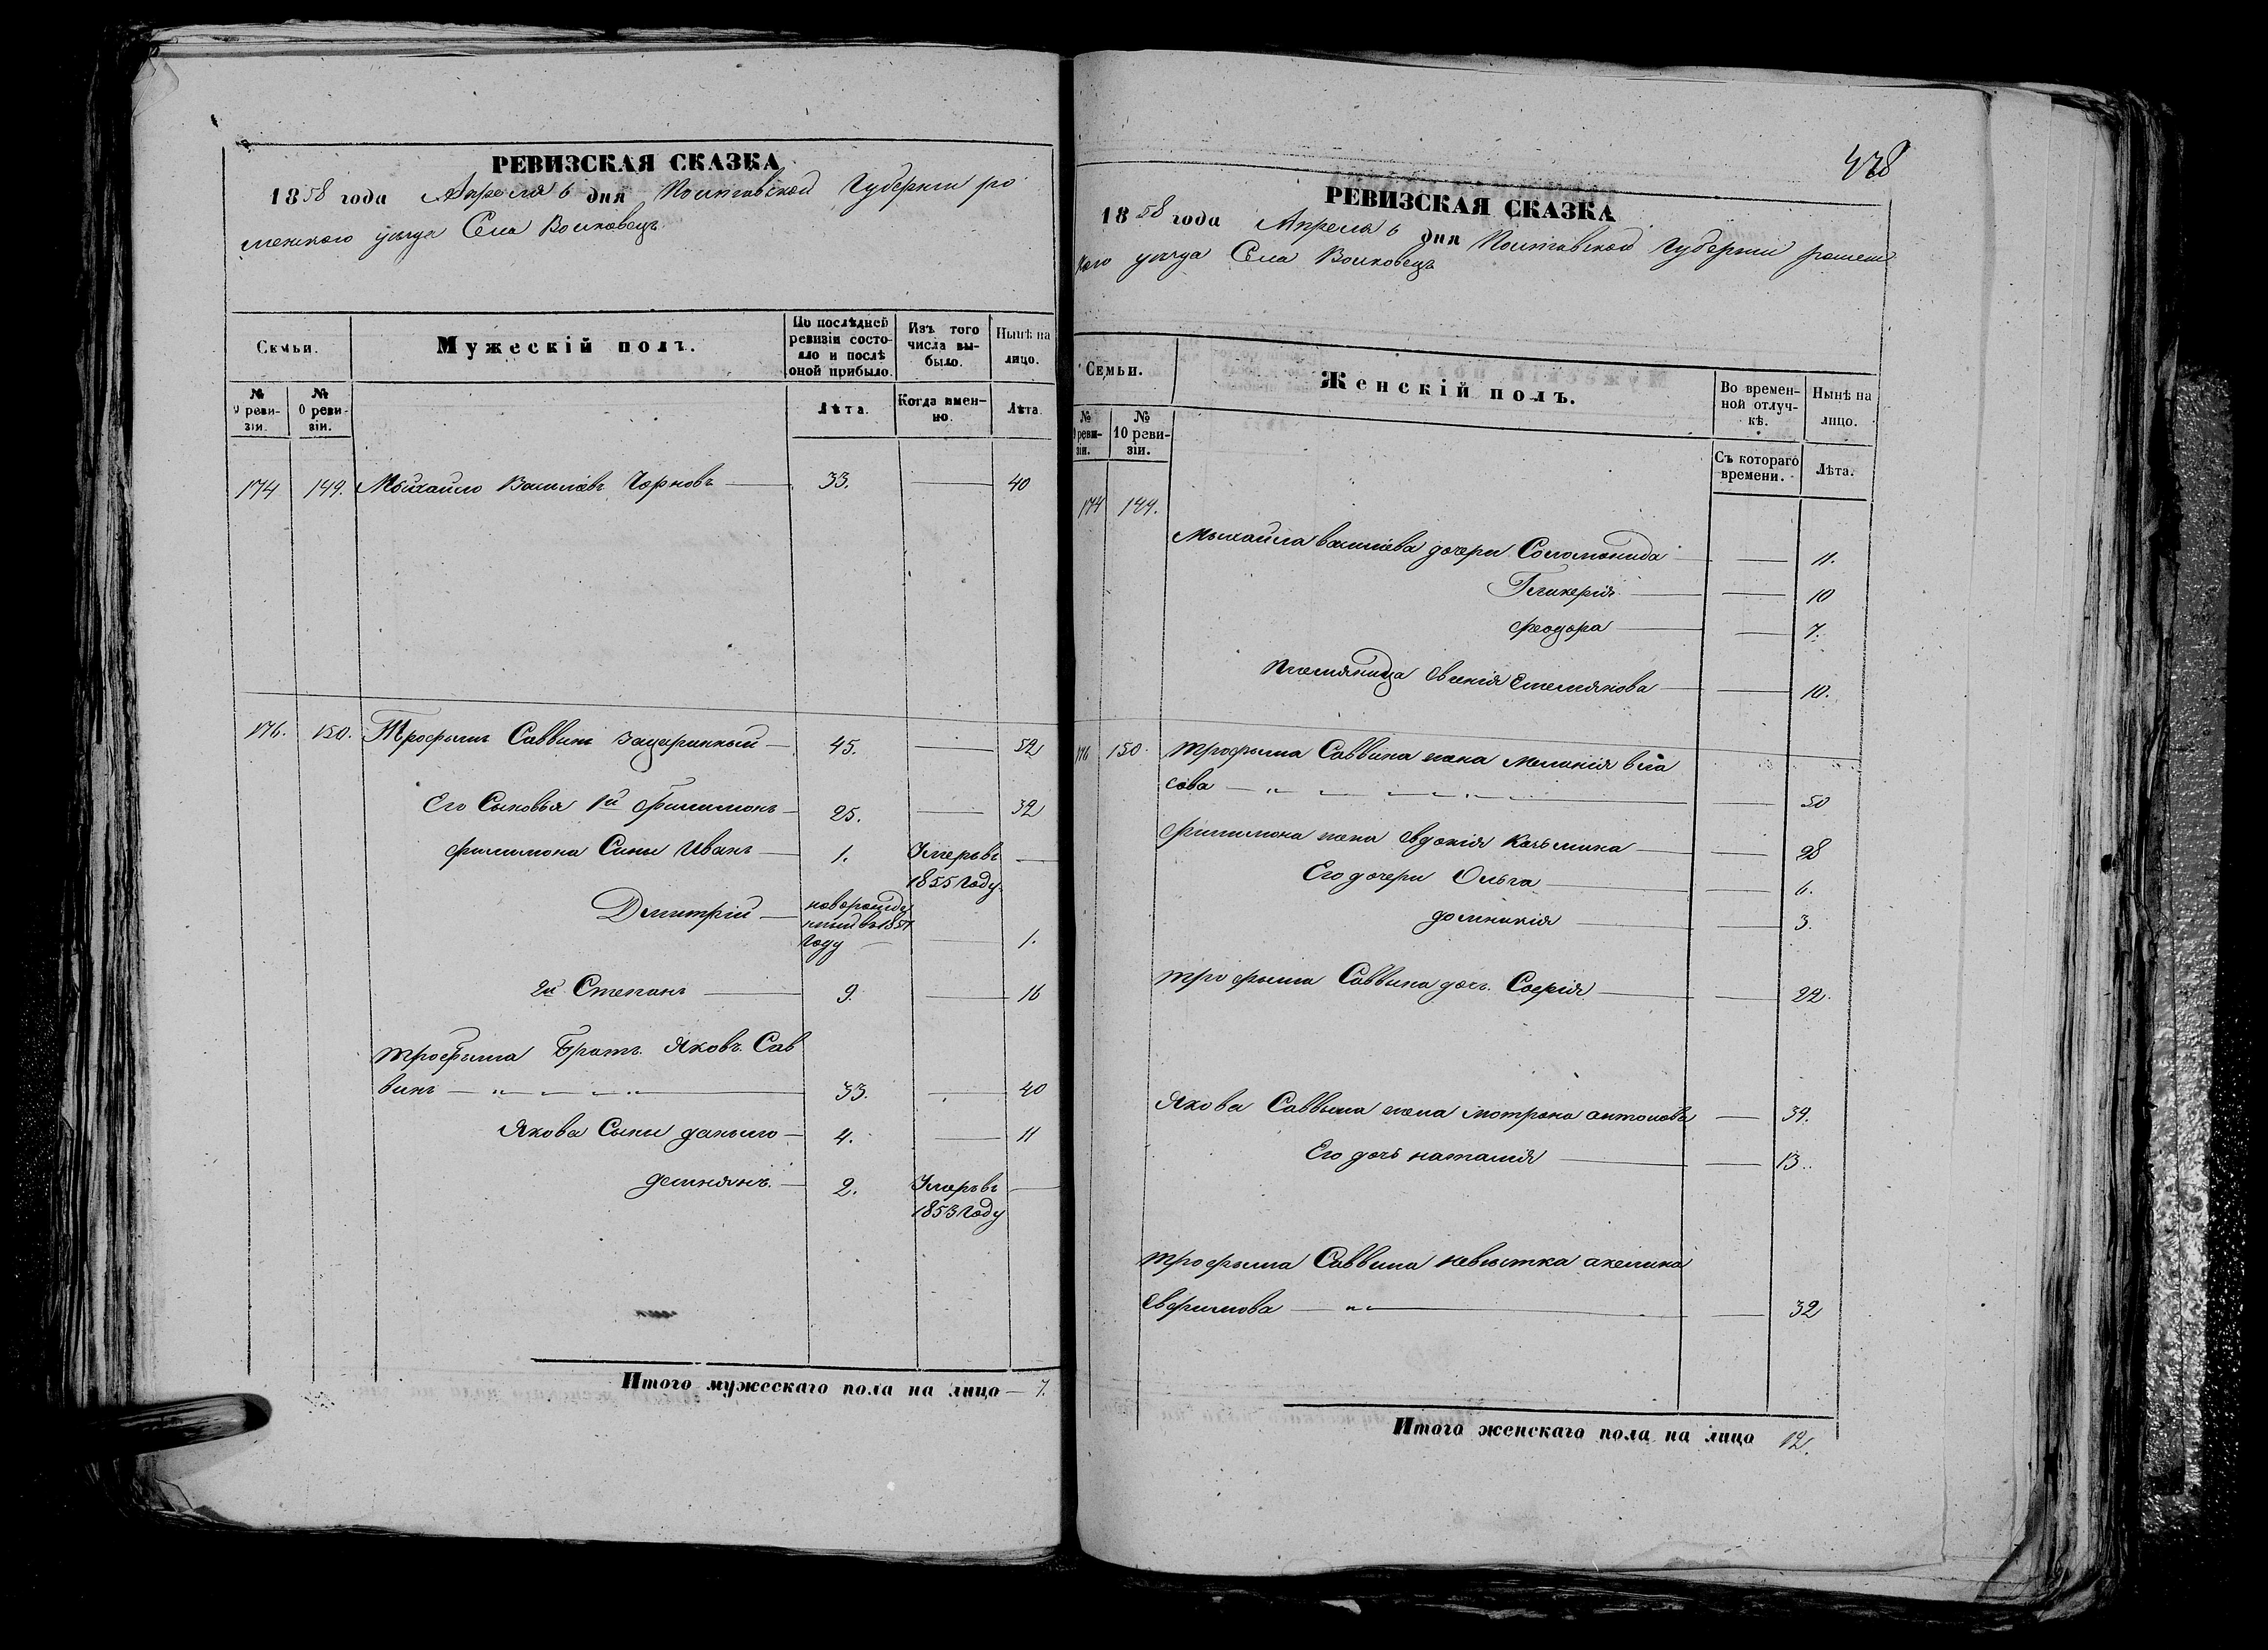 РЕВИЗСКАЯ СКАЗКА
1858 года Апреля 6 дня Полтавской Губернии ро
менского уезда Села Волковецъ
Семьи.
Мужескій полъ.
По послѣдней ревизіи состояло и послѣ оной прибыло.
Изъ того числа выбыло.
Нынѣ на лицо.
№ 9 ревизіи.
№ 10 ревизіи.
Лѣта.
Когда именно.
Лѣта
174 149. Михайло Василіевъ Чорновъ 33. — 40
176. 150. Трофымъ Саввинъ — 45. — 52
Его Сыновья 1й Филимонъ — 25. — 32
Филимона Сины Иванъ — 1. Умеръ въ —
1855 Году
Дмитрій — новорожде
нный въ 1857
Году — — 1.
2й Степанъ — 9. — 16
Трофыма Братъ Яковъ Сав
винъ — 33. — 40
Якова Сыны данило — 4. — 11
демянъ. — 2. Умеръ въ —
1853 Году
Итого мужескаго пола на лицо — 7.
428
РЕВИЗСКАЯ СКАЗКА
1858 года Апреля 6 дня Полтавской Губернии ромен
кого уезда Села Волковецъ
Семьи.
Женскій полъ.
Во временной отлучкѣ.
Нынѣ на лицо.
№ 9 ревизіи.
№ 10 ревизіи.
Съ котораго времени.
Лѣта.
174 149.
Михайла василіева дочери Соломонида — 11.
Гликерія — — 10
феодора — — 7.
племяница Емелянова — — 10.
176 150. Трофыма Саввина жена меланія вла
сова — — 50
филимона жена Евдокія Козьмина — — 28
Его дочери Ольга — — 6.
домникія — — 3.
Трофыма Саввина дочь Софія — — 22.
Якова Саввина жена мотрона антонова — 34.
Его дочь наталія — — 13.
Трофыма Саввина невѣстка акелина
Евфимова — — 32
Итого женскаго пола на лицо 12.